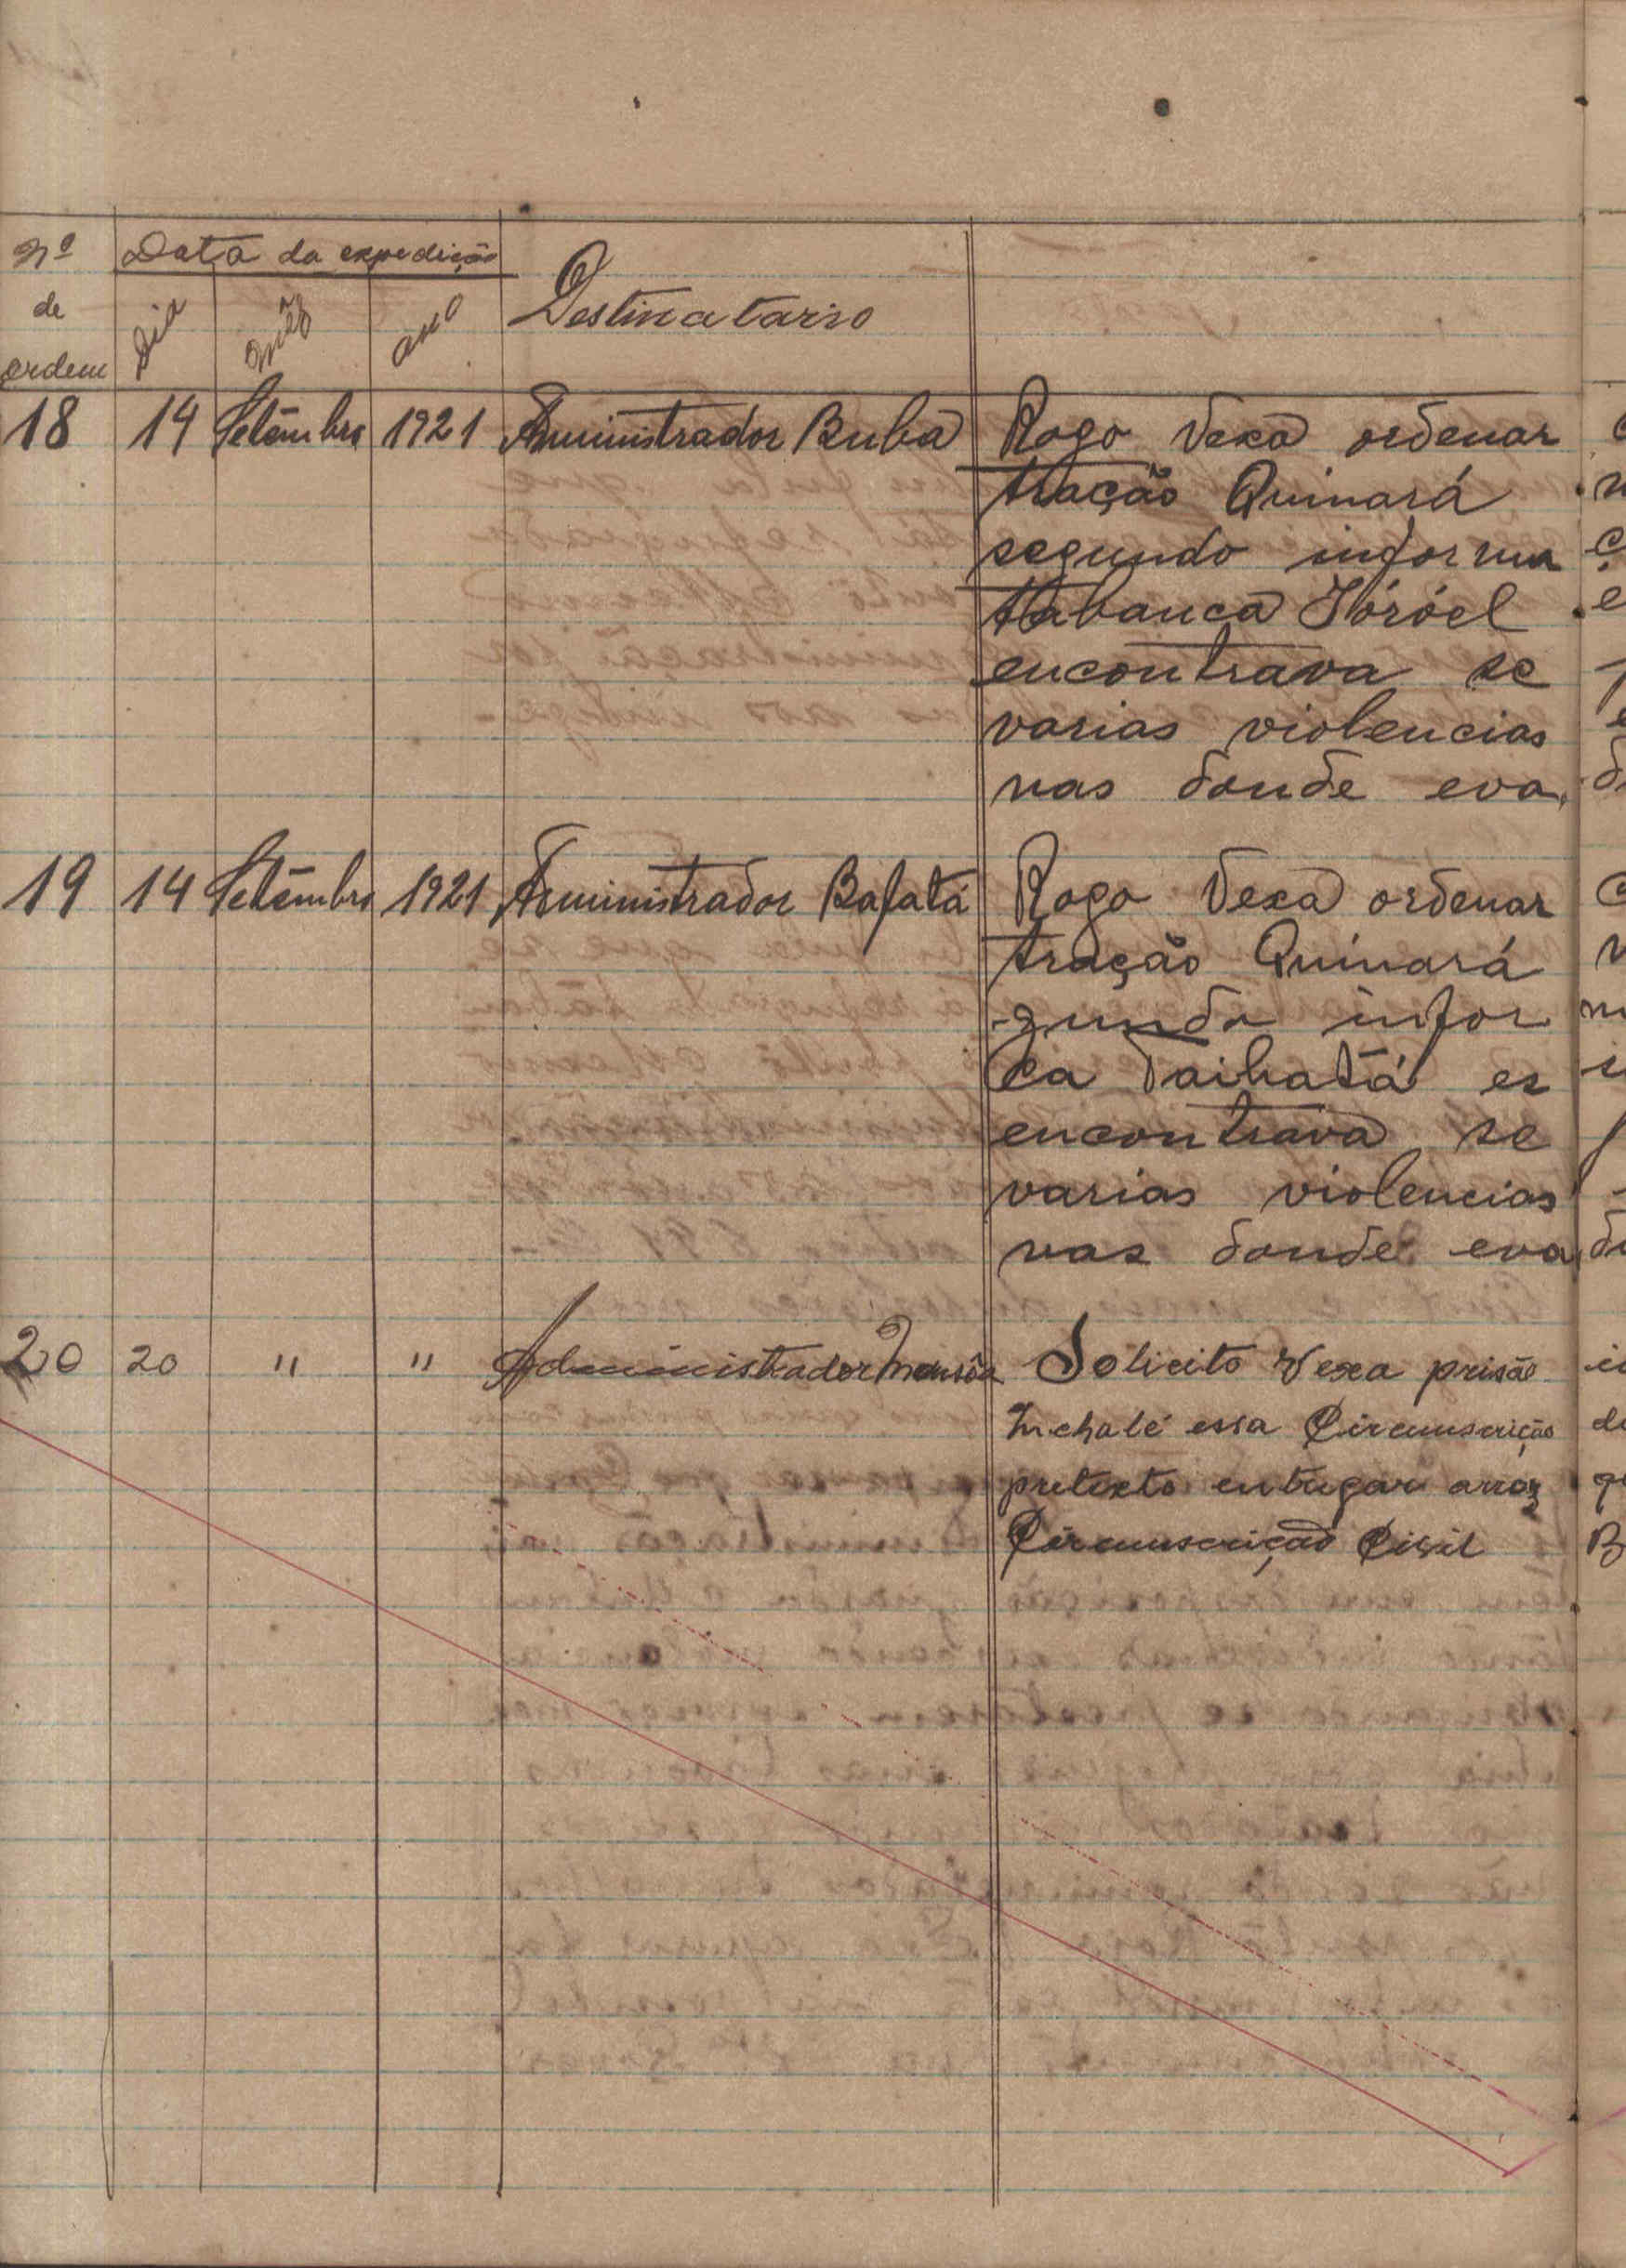 Nº de ordem
Data da expedição
Dia
Mês
Ano
Destinatario
18 14 Setêmbro 1921 Administrador Buba Rogo Vexa ordenar
tração Quinará
segundo informa
tabanca Jóróel
encontrava se
varias violencias
nas donde eva
19 14 Setêmbro 1921 Administrador Bafatá Rogo Vexa ordenar
tração Quinará
gundo infor
ca es
encontrava se
varias violencias
nas donde eva
20 20 " " Administrador Mansôa Solicito Vexa prisão
Inchalé essa Circunscrição
pretexto entregar arroz
Circunscrição Civil